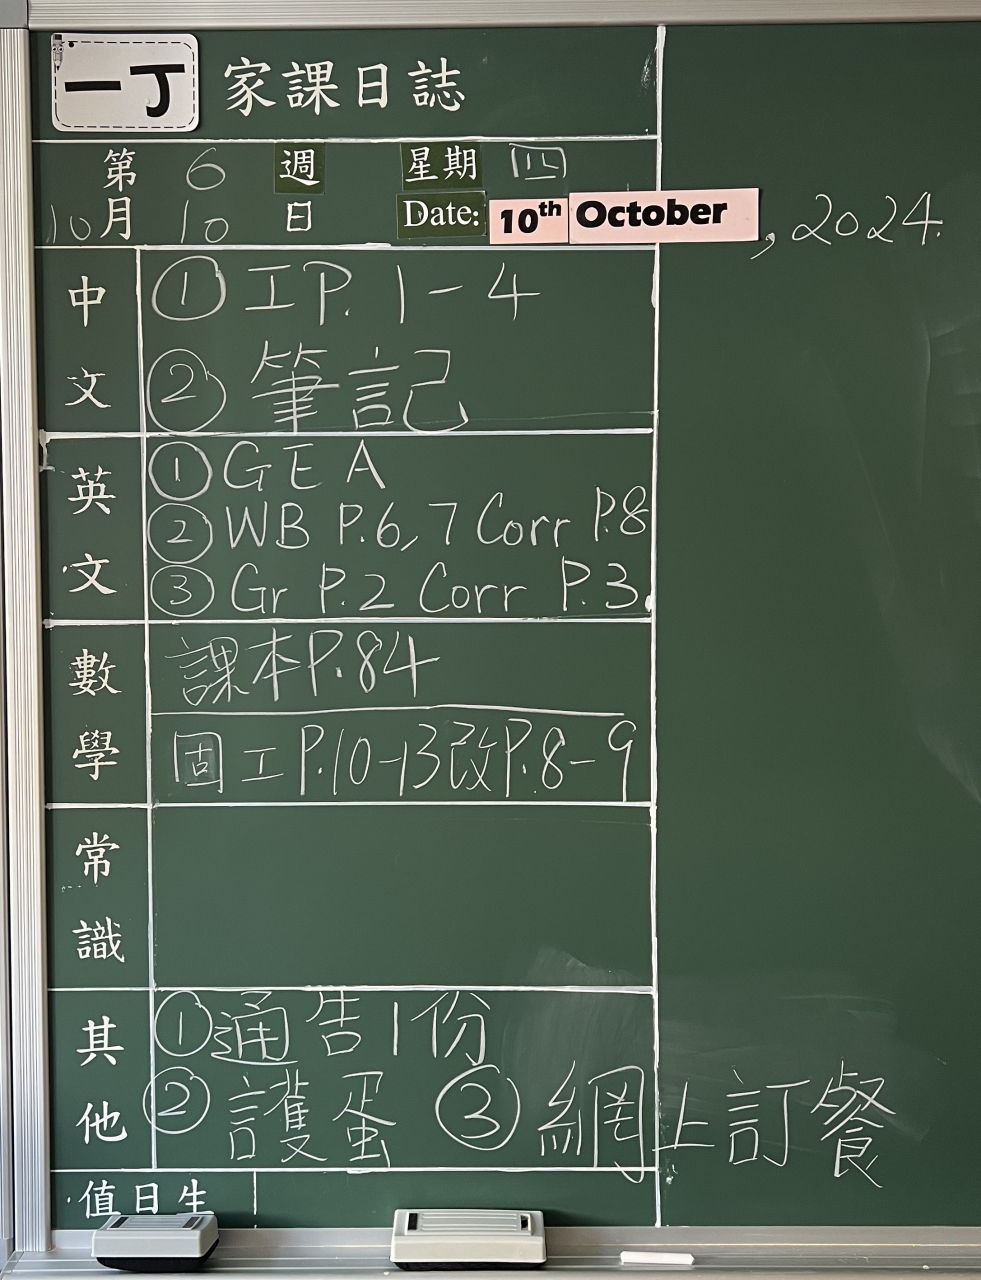 一丁 家課日誌
第 6 週 星期 四
10月 10 日 Date: 10th October, 2024.
中文
① 工 P. 1-4
② 筆記
英文
① GE A
② WB P.6,7 Corr P.8
③ Gr P.2 Corr P.3.
數學
課本P.84
固工P.10-13改P.8-9
常識
其他
①通告1份
② 護蛋 ③ 網上訂餐
值日生